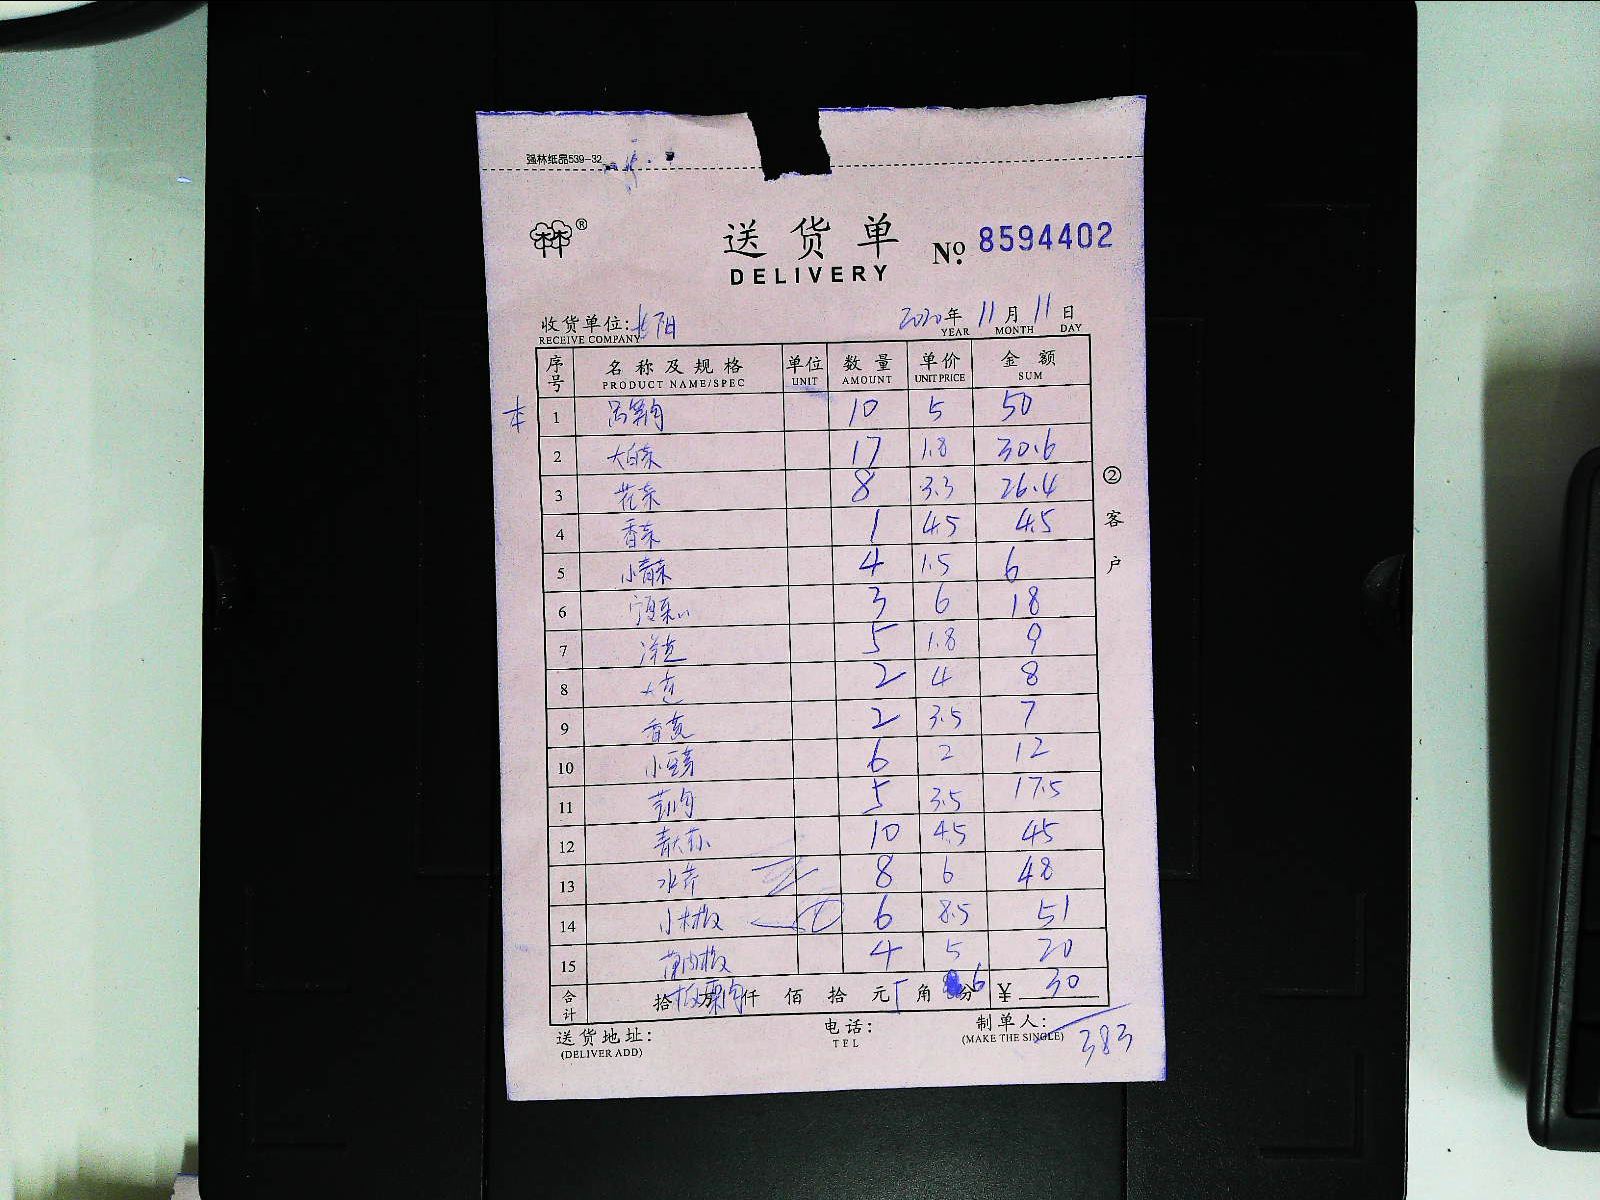 强林纸品539-32
®
送货单 № 8594402
DELIVERY
收货单位: 2020年 11月 11日
RECEIVE COMPANY YEAR MONTH DAY
序号 名称及规格 单位 数量 单价 金额
PRODUCT NAME/SPEC UNIT AMOUNT UNIT PRICE SUM
1 10 5 50
2 大白菜 17 1.8 30.6
3 花菜 8 3.3 26.4
4 香菜 1 4.5 4.5
5 小青菜 4 1.5 6
6 3 6 18
7 5 1.8 9
8 2 4 8
9 2 3.5 7
10 小豆芽 6 2 12
11 5 3.5 17.5
12 10 4.5 45
13 水芹 8 6 48
14 小椒 6 8.5 51
15 4 5 20
合计 拾 万 仟 佰 拾 元 角 分 6 ¥ 30
送货地址: 电话: 制单人:
(DELIVER ADD) TEL (MAKE THE SINGLE) 383
②客户